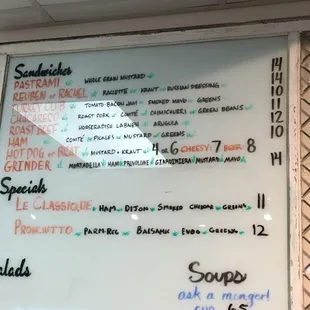 Sandwiches
PASTRAMI WHOLE GRAIN MUSTARD 14
REUBEN or RACHEL RACLETTE KRAUT RUSSIAN DRESSING 14
TOMATO BACON JAM SMOKED MAYO GREENS 10
ROAST PORK COMTÉ CHIMICHURRI GREEN BEANS 11
ROAST BEEF HORSERADISH LABNEH ARUGULA 12
HAM COMTÉ PICKLES MUSTARD GREENS 10
HOT DOG or BRAT MUSTARD KRAUT 4 or 6 CHEESY 7 BEER 8
GRINDER MORTADELLA HAM PROVOLONE GIARDINIERA MUSTARD MAYO 14
Specials
LE CLASSIQUE HAM DIJON SMOKED CHEDDAR GREENS 11
PROSCIUTTO PARM-REG BALSAMIC EVOO GREENS 12
alads
Soups
ask a monger!
CUP 6.5